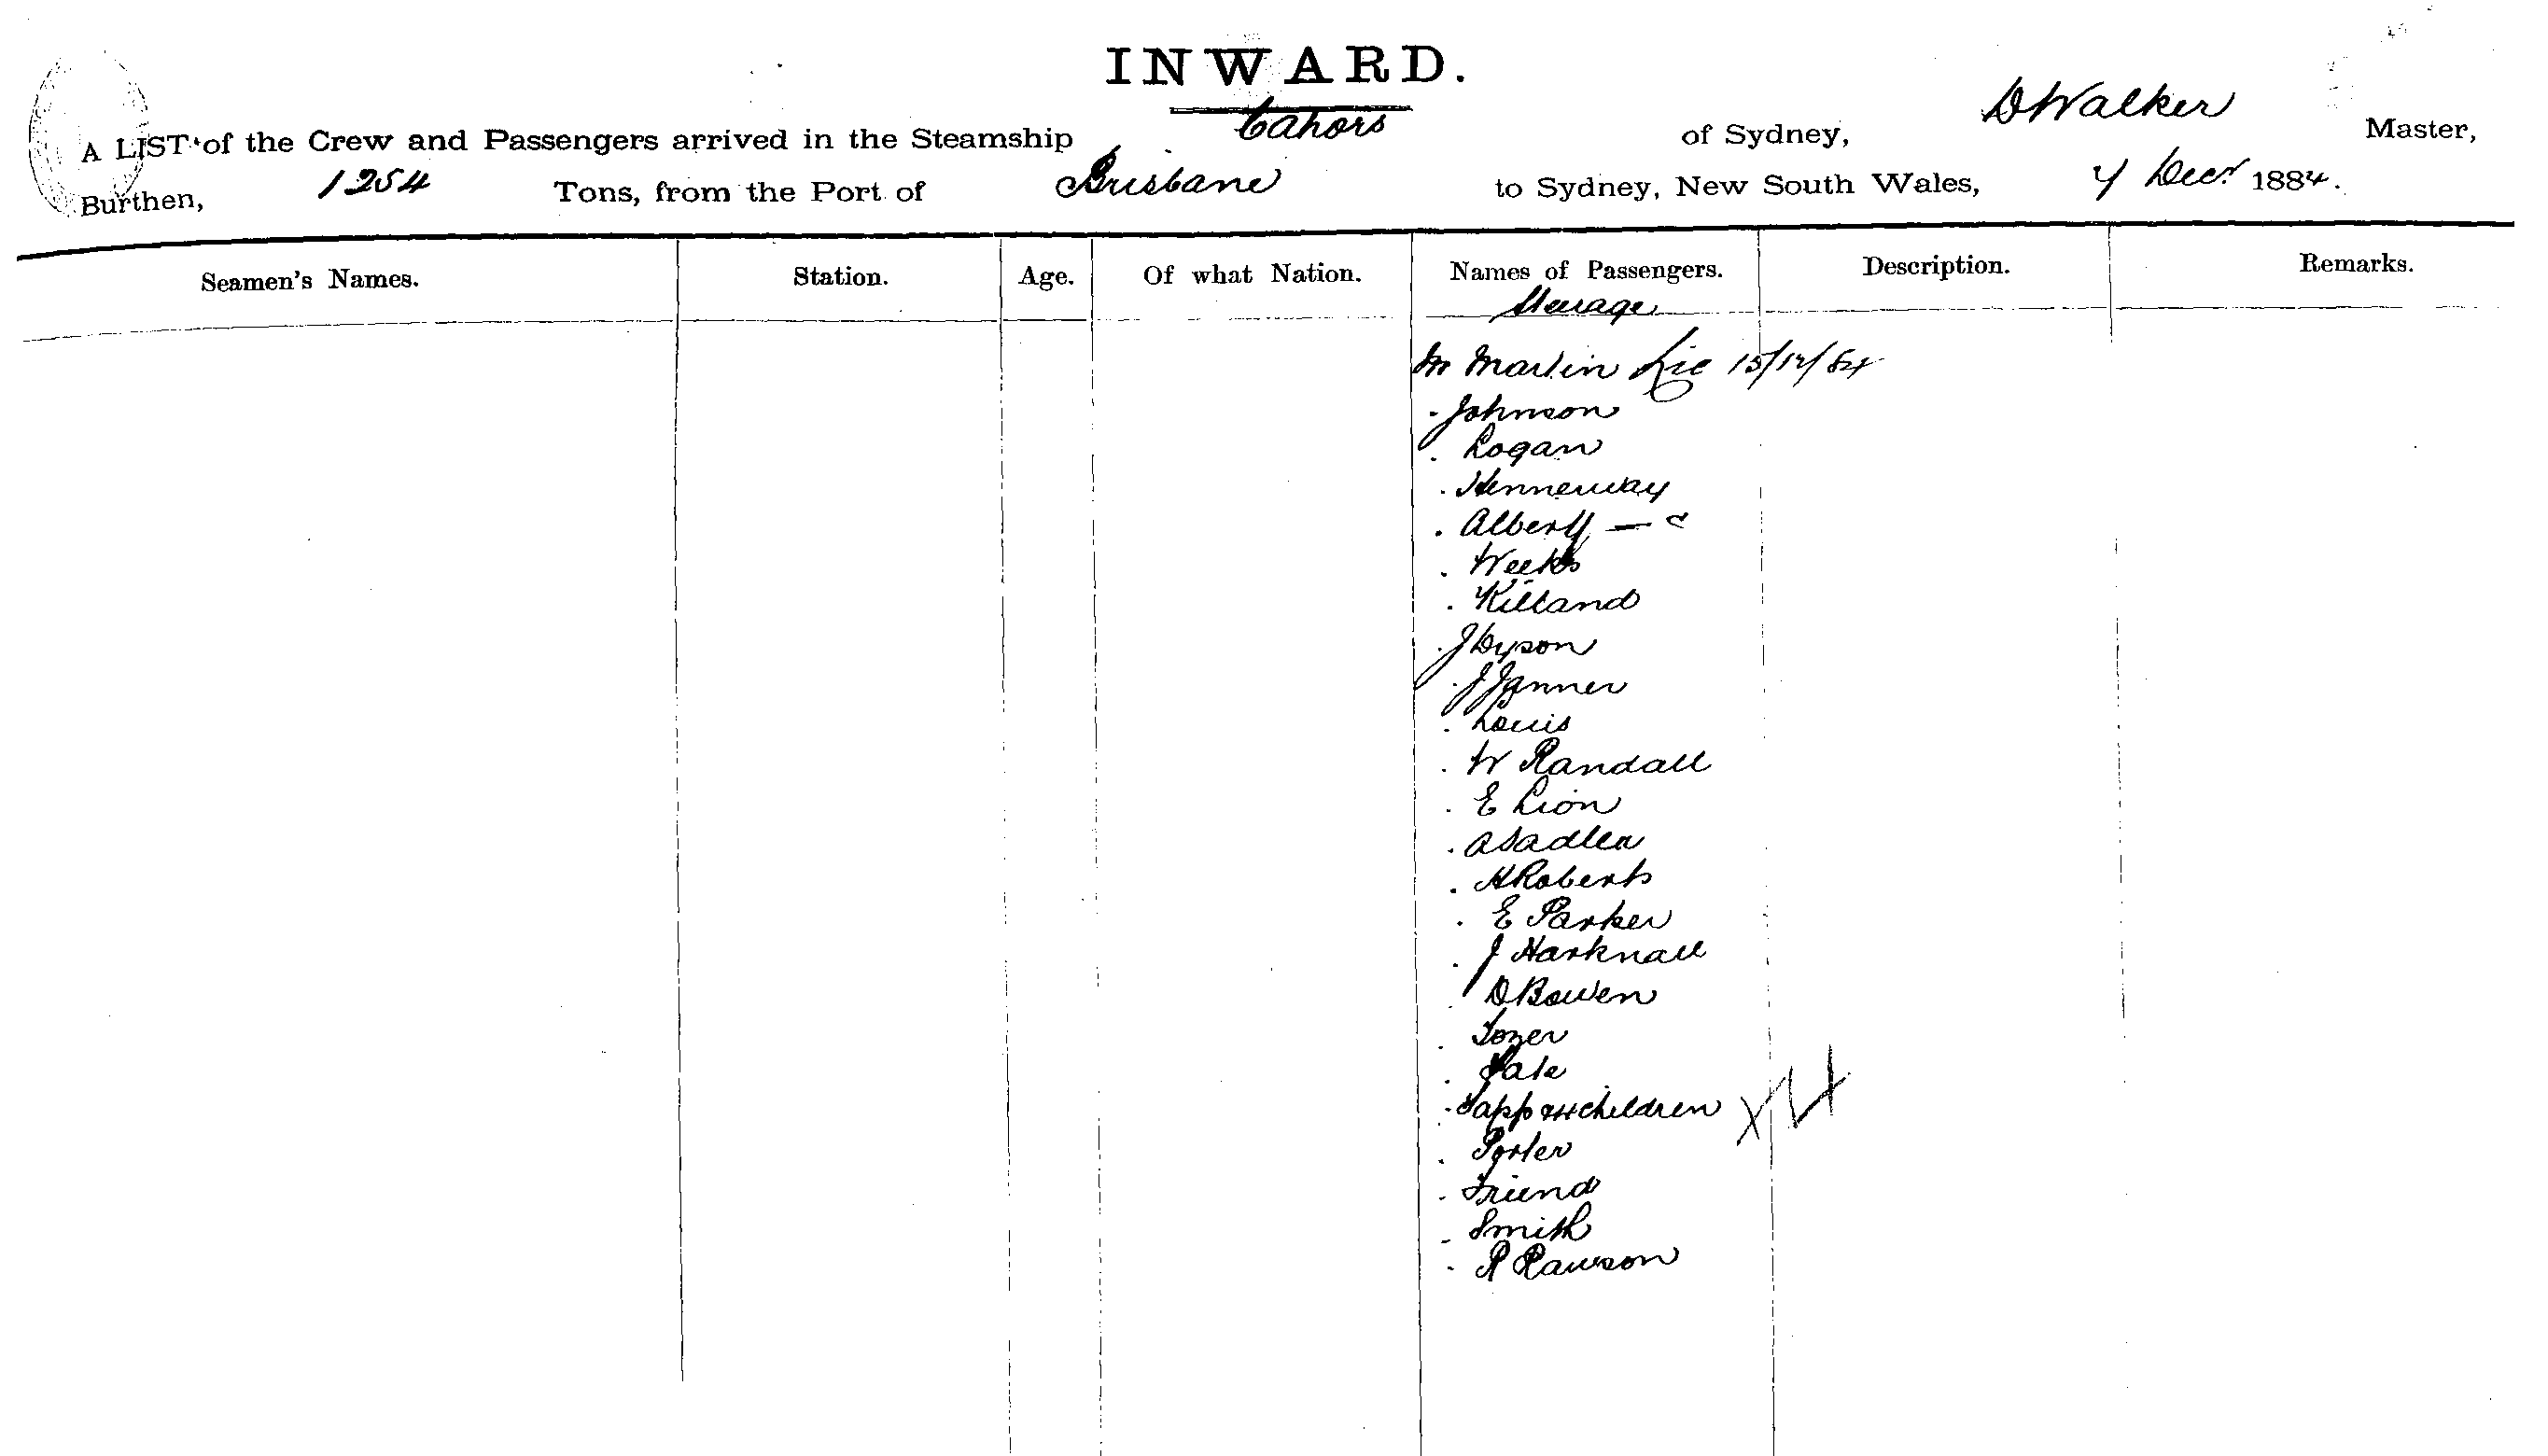 INWARD.
A LIST of the Crew and Passengers arrived in the Steamship Cahors of Sydney, D Walker Master,
Burthen, 1254 Tons, from the Port of Brisbane to Sydney, New South Wales, 4 Decr 1884.
Seamen's Names. Station. Age. Of what Nation. Names of Passengers. Description. Remarks.
Steerage
Mr Martin 15/12/84
Johnson
Logan
Henneway
Albert
Weeks
Killand
J Dyson
J Janner
Louis
W Randall
E Lion
A Sadler
H Roberts
E Parker
J Harknall
D Bowen
Tozer
Tate
Tapp children
Porter
Friend
Smith
R Rawson